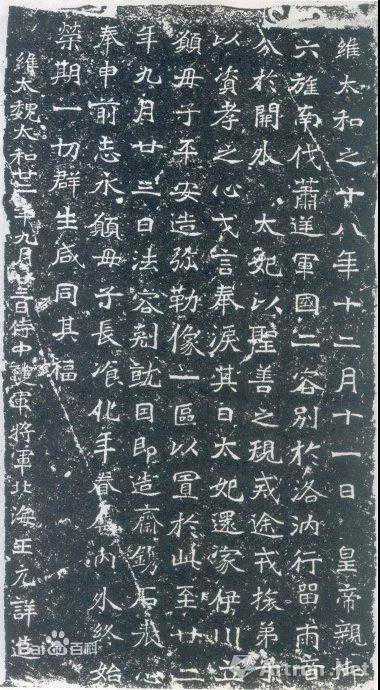 維太和之十八年十二月十一日 皇帝親
六旌南伐蕭逆軍國二容別於洛汭行留兩音
分於闕外 太妃以聖善之規戒途戎旅弟子
以資孝之心戈言奉淚其日太妃還家伊川立
願母子平安造彌勒像一區以置於此至廿二
年九月廿三日法容剋就因即造齋鐫石表心
奉申前志永願母子長飡化年眷屬內外終始
榮期一切群生咸同其福
維太魏太和廿二年九月廿三日侍中護軍將軍北海王元詳造
Bai百科
Artron.Net